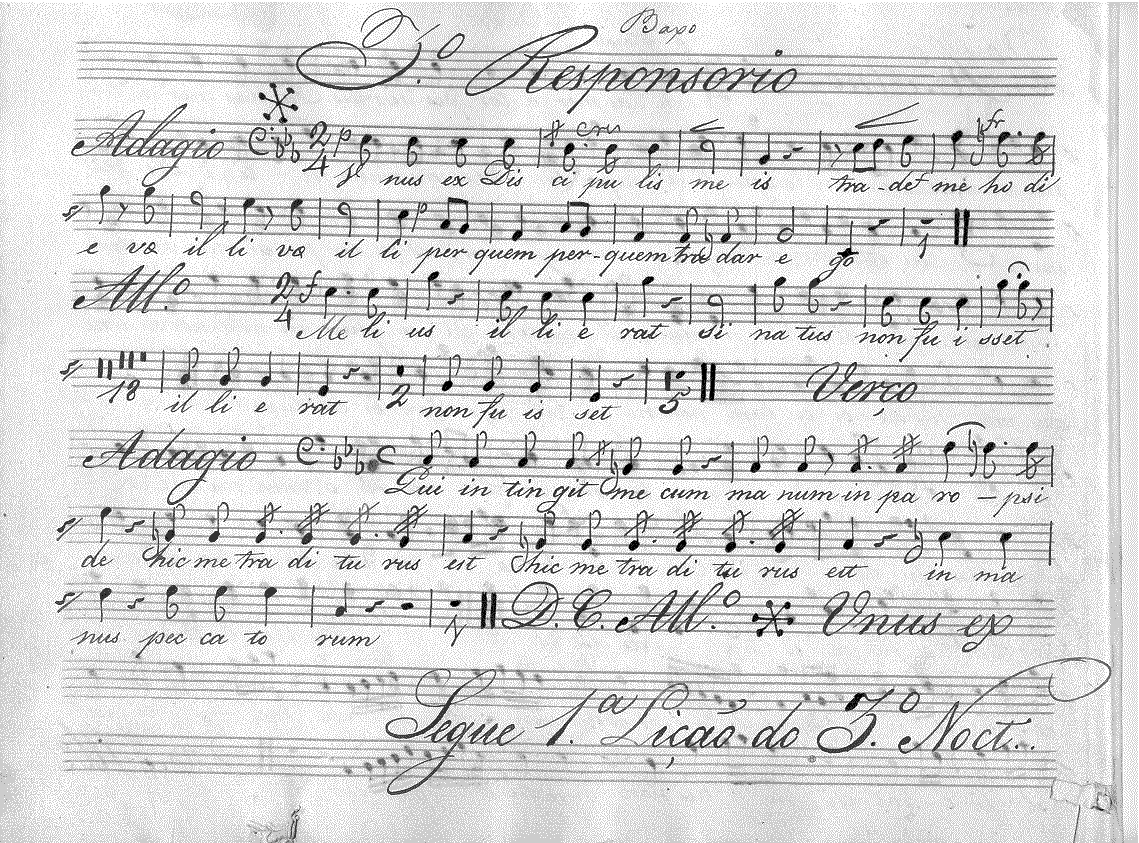 Baxo
3.º Responsorio
Adagio 2/4 p cres fr
V nus ex Dis ci pu lis me is tra-det me ho di
e væ il li væ il li per quem per-quem tradar e go
All.º 2/4 f
Me li us il li e rat si na tus non fu i sset
18 2 5 Verço
il li e rat non fu is set
Adagio C
Qui in tin git me cum ma num in pa ro - psi
de hic me tra di tu rus est hic me tra di tu rus est in ma
D. C. All.º Vnus ex
nus pec ca to rum
Segue 1.ª Liçaõ do 3.º Noct..